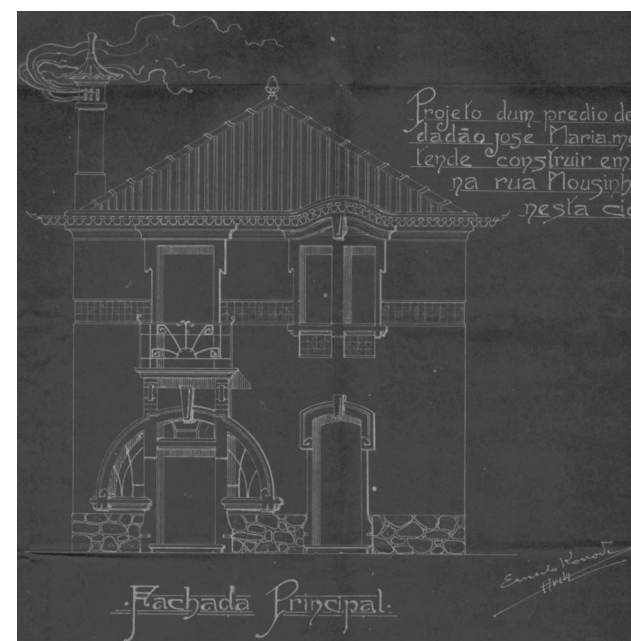 Projeto dum predio de
dadão José Maria
tende construir em
na rua Mousinh
nesta ci
Fachada Principal.
Ernesto Korrodi
Arch